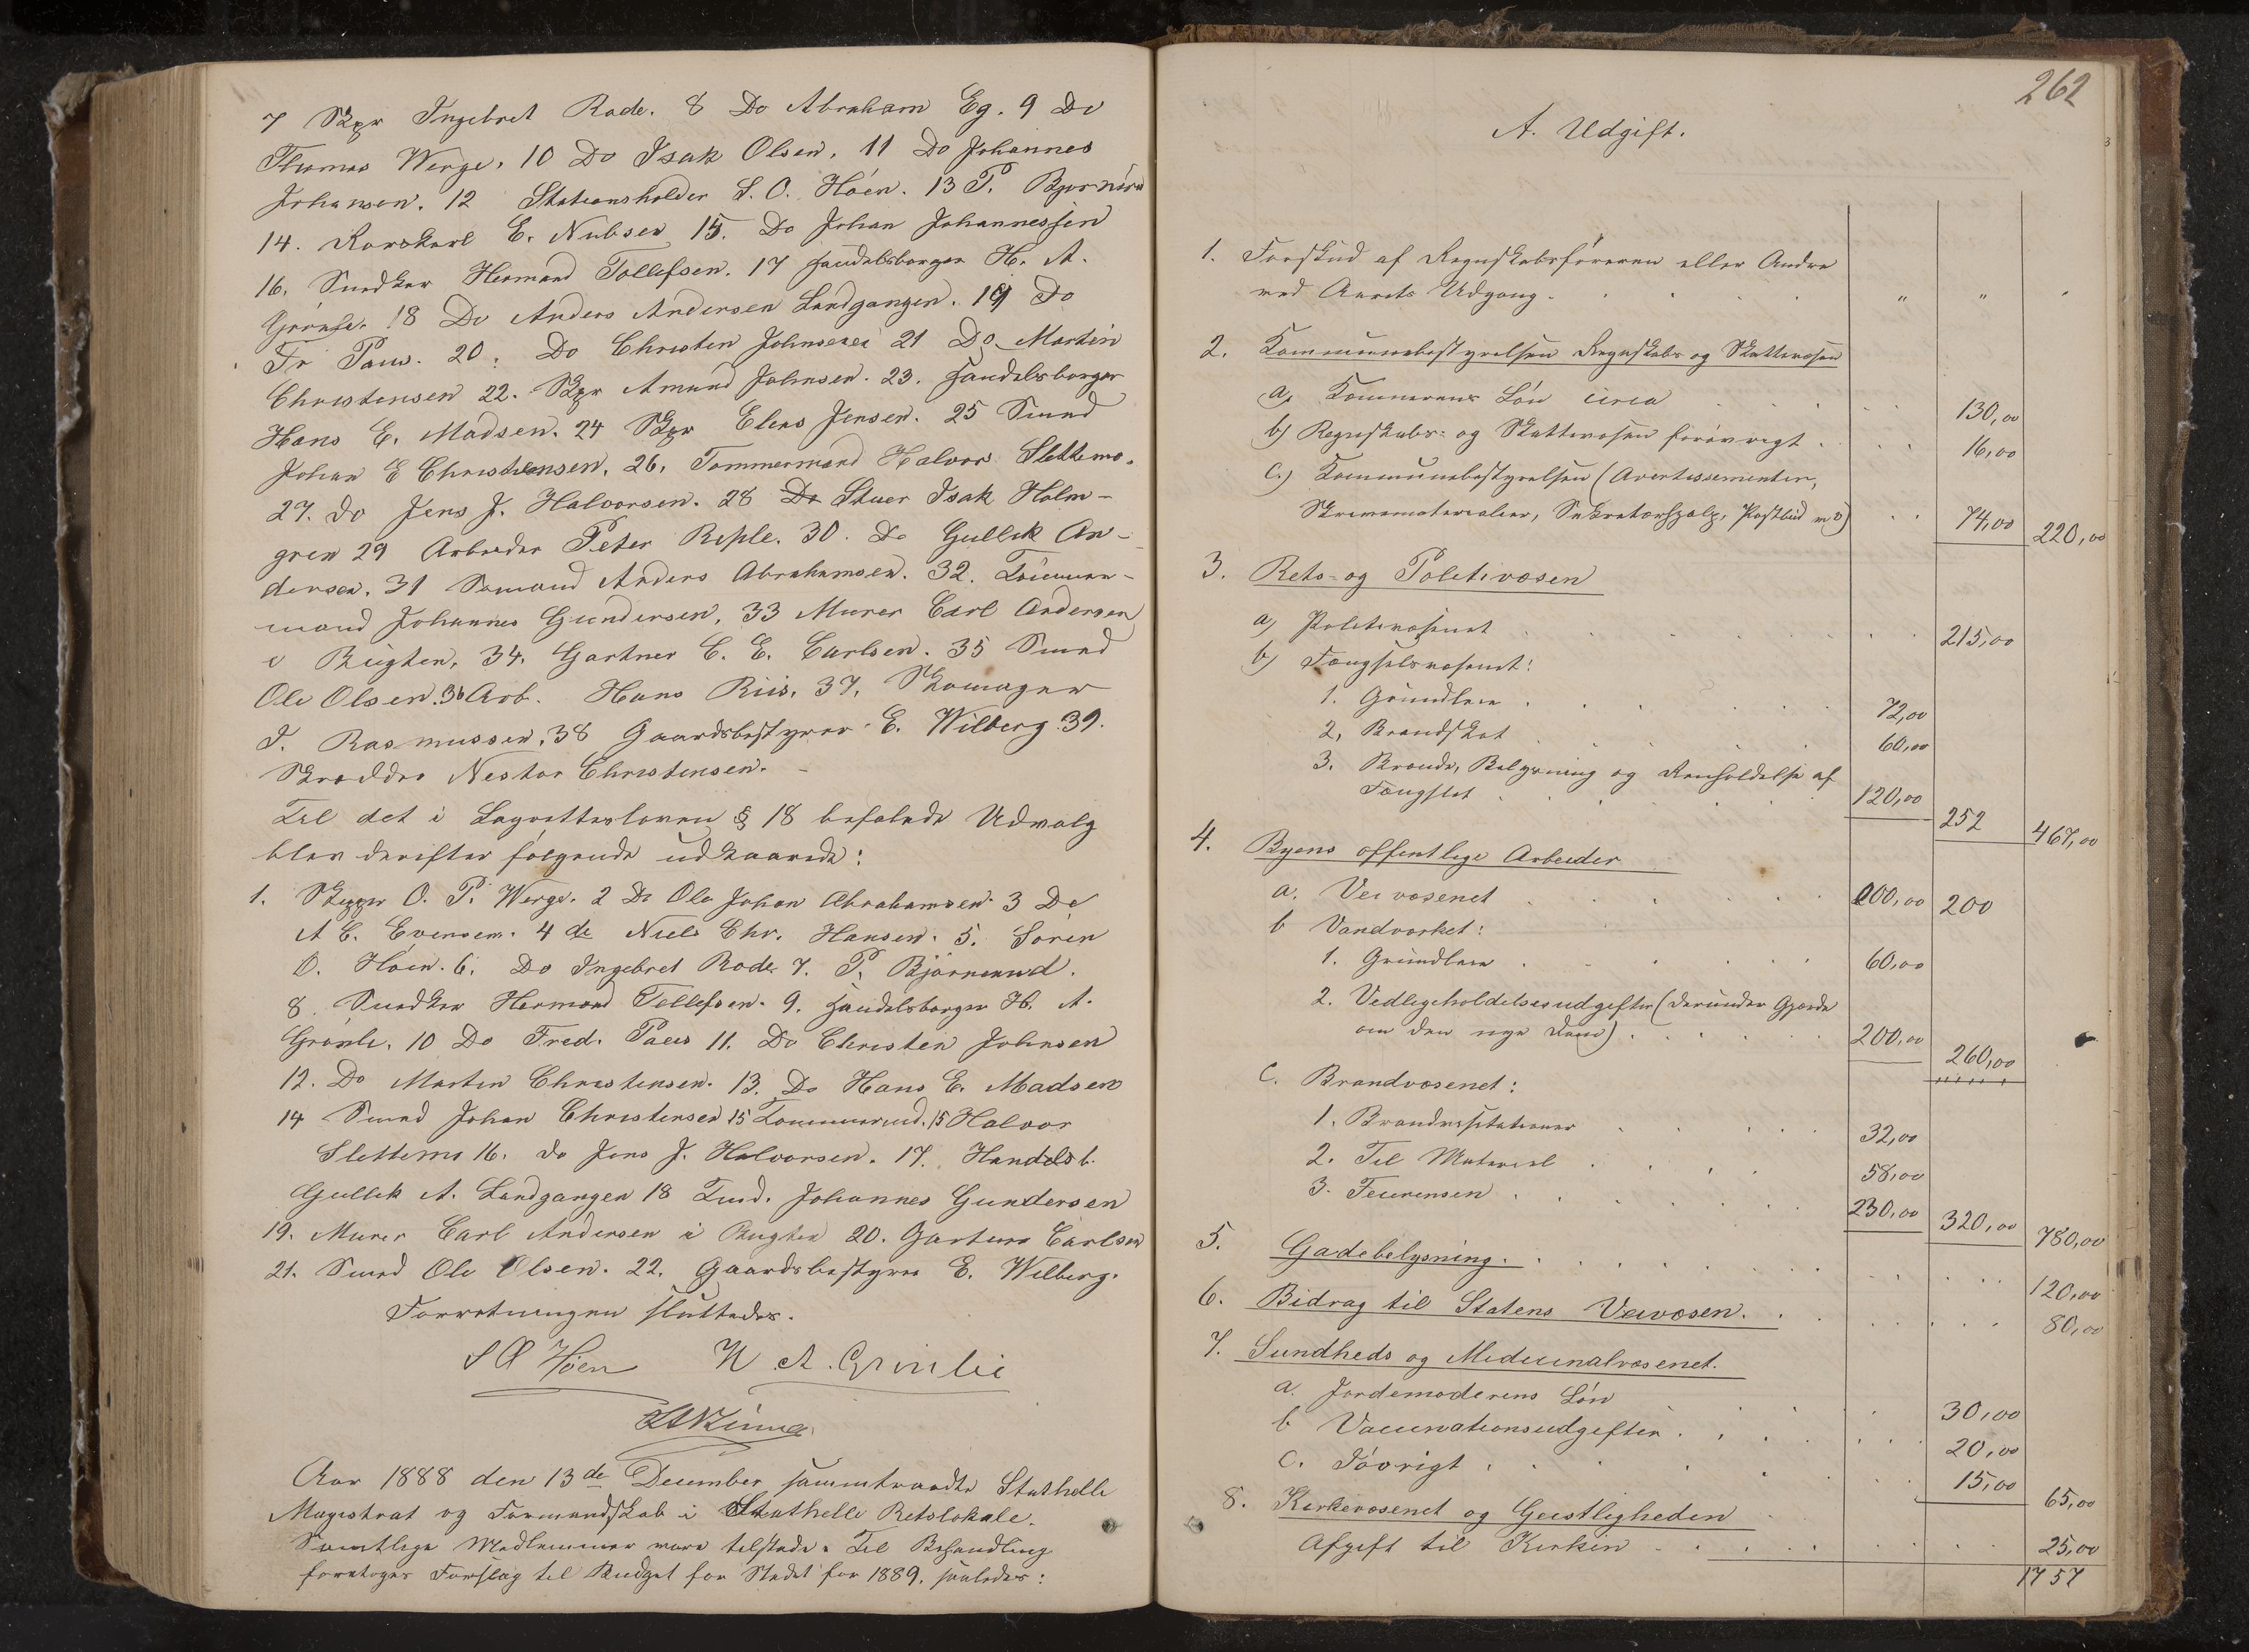 7 Skpr Ingebret Rode. 8 Do Abraham Eg. 9 Do
Thomas Werge, 10 Do Isak Olsen, 11 Do Johannes
Johansen. 12 Stationsholder S. O. Höen. 13 P.
14. E. Nubsen 15. Do Johan Johannessen
16. Snedker Hermand Tollefsen. 17 Handelsborger H. A.
Grönli. 18 Do Anders Andersen Landgangen. 19 Do
Fr Paus. 20. Do Christen Johnsen 21 Do Martin
Christensen 22. Skpr Amund Johnsen. 23. Handelsborger
Hans E. Madsen. 24 Skpr Elias Jensen. 25 Smed
Johan E Christensen, 26, Tømmermand Halvor Slettemo.
27. do Jens J. Halvorsen. 28 Do Stuer Isak Holm-
gren 29 Arbeider Peter Reple. 30. Do Gullik An-
dersen. 31 Sømand Anders Abrahamsen. 32. Tömmer-
mand Johannes Gundersen, 33 Murer Carl Andersen
i Bugten, 34. Gartner C. E. Carlsen. 35 Smed
Ole Olsen. 36 Arb. Hans Riis, 37, Skomager
J. Rasmussen, 38 Gaardsbestyrer E. Wilberg. 39.
Skrædder Nestor Christensen. -
Til det i Lagretteloven § 18 befalede Udvalg
blev derefter følgende udkaarede:
1. Skipper O. P. Werge. 2 Do Ole Johan Abrahamsen. 3 Do
A C. Evensen. 4 do Niels Chr. Hansen. 5. Sören
O. Höen. 6. Do Ingebret Rode 7. P. Björnerud.
8. Snedker Hermand Tollefsen. 9. Handelsborger H. A.
Grönli, 10 Do Fred. Paus 11. Do Christen Johnsen
12. Do Martin Christensen. 13. Do Hans E. Madsen
14 Smed Johan Christensen 15 Tømmermd. 15 Halvor
Slettemo 16. do Jens J. Halvorsen. 17. Handelsb.
Gullik A. Landgangen 18 Tmd. Johannes Gundersen
19. Murer Carl Andersen i Bugten 20. Gartner Carlsen
21. Smed Ole Olsen. 22. Gaardsbestyrer E. Wilberg.
Forretningen sluttedes.
S O Høen H. A. Grönlie
Aar 1888 den 13de December sammtraadte Stathelle
Magistrat og Formandskab i Stathelle Retslokale.
Samtlige Medlemmer vare tilstede. Til Behandling
foretoges Forslag til Budget for Stedet for 1889, saaledes:
262
A. Udgift.
1. Forskud af Regnskabsføreren eller Andre
ved Aarets Udgang. " "
2. Kommunebestyrelsen Regnskabs og Skattevæsen
a) Kæmnerens Lön circa 130,00
b) Regnskabs- og Skattevæsen forövrigt. 16,00
c.) Kommunebestyrelsen (Avertissementer,
Skrivematerialier, Sekretærhjælp, Postbud m v) 74,00 220,00
3. Rets- og Politivæsen
a) Politivæsenet 215,00
b) Fængselsvæsenet:
1. Grundleie 72,00
2, Brandskat 60,00
3. Brænde, Belysning og Renholdelse af
Fængslet 120,00 252 467,00
4. Byens offentlige Arbeider
a. Veivæsenet 200,00 200
b Vandværket:
1. Grundleie 60,00
2. Vedligeholdelsesudgifter (derunder Gjærde
om den nye Dam) 200,00 260,00
c. Brandvæsenet:
1. Brandvisitationer 32,00
2. Til Materiel 58,00
3. Feierensen 230,00 320,00 780,00
5. Gadebelysning. 120,00
6. Bidrag til Statens Veivæsen. 80,00
7. Sundheds og Medicinalvæsenet.
a. Jordemoderens Lön 30,00
b Vaccinationsudgifter 20,00
c. Iövrigt 15,00 65,00
8. Kirkevæsenet og Geistligheden
Afgift til Kirken 25,00
1757